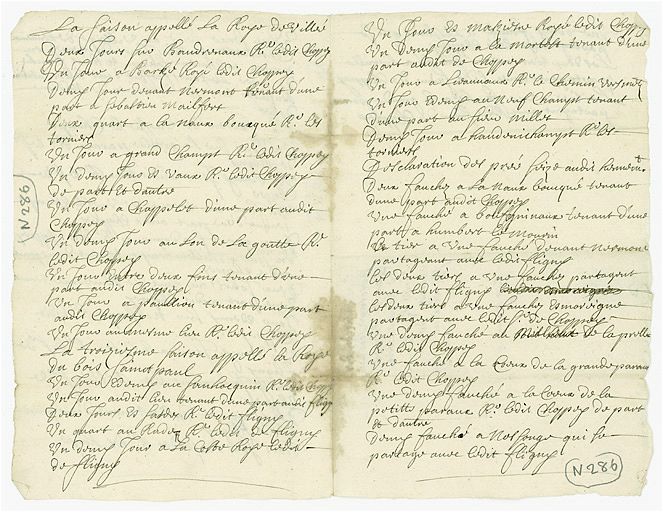 La saison appellé La Roye de Villé
Deux Jours sur Ro le dit Choppey
Un Jour a Royé le dit Choppey
Demy Jour devant Nermont tenant d'une
part a Sebastien Mailfert
Deux quart a la Naux bouqué Ro les
torniers
Un Jour a grand Champt Ro le dit Choppey
Un demy Jour Es Vaux Ro le dit Choppey
de part Et d'autre
Un Jour a Chappelet d'une part audit
Choppey
Un demy Jour au fon de La goutte Ro
le dit Choppey
Un Jour deux fins tenant d'une
part audit Choppey
Un Jour a pavillion tenant d'une part
audit Choppey
Un Jour au mesme lieu Ro le dit Choppey
La troizieme saison appellé la Roye
du bois Sainct paul
Un Jour Edemy au Ro le dit Choppey
Un Jour audit lieu tenant d'une part audit fligny
Deux Jours Es Ro le dit fligny
Un quart au Ro le dit de fligny
Un demy Jour a La Coste Roye le dit
de fligny
N 286
Un Jour Es Royé le dit Choppey
Un Demy Jour a la tenant d'une
part audit de Choppey
Un Jour a Ro le Chemin
Un Jour Edemy au Neuf Champt tenant
d'une part au sieur Millet
Demy Jour a handenichampt Ro les
torniers
Desclaration des preé seize audit
Deux fauches a La Naux bouqué tenant
d'une part audit Choppey
Une fauché a tenant d'une
part a humbert le Mourin
Le tier a Une fauché devant Nermont
partageant avec le dit fligny
les deux tiers a Une fauchey partagent
avec le dit fligny
les deux tiers a Une fauchey
partageant avec le dit Sr de Choppey
Une demy fauché au de la prelle
Ro le dit Choppey
Une fauché a la Coeur de la grande paraux
Ro le dit Choppey
Une demy fauché a le Coeur de la
petitte paraux Ro le dit Choppey de part
Et d'autre
Demy fauché a qui se
partage avec le dit fligny
N 286